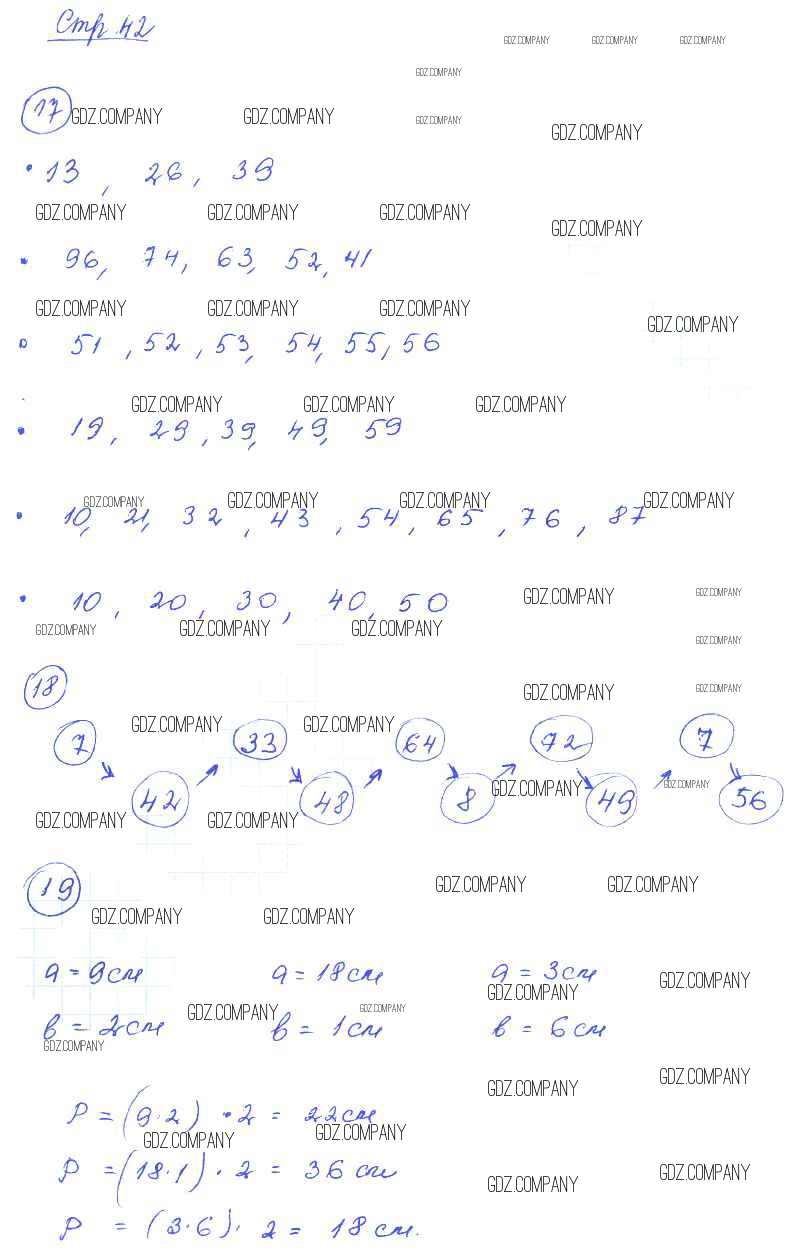 Стр 42
GDZ.COMPANY GDZ.COMPANY GDZ.COMPANY
GDZ.COMPANY
17 GDZ.COMPANY GDZ.COMPANY GDZ.COMPANY GDZ.COMPANY
• 13, 26, 39
GDZ.COMPANY GDZ.COMPANY GDZ.COMPANY GDZ.COMPANY
• 96, 74, 63, 52, 41
GDZ.COMPANY GDZ.COMPANY GDZ.COMPANY GDZ.COMPANY
• 51, 52, 53, 54, 55, 56
GDZ.COMPANY GDZ.COMPANY GDZ.COMPANY
• 19, 29, 39, 49, 59
GDZ.COMPANY GDZ.COMPANY GDZ.COMPANY GDZ.COMPANY
• 10, 21, 32, 43, 54, 65, 76, 87
• 10, 20, 30, 40, 50 GDZ.COMPANY GDZ.COMPANY
GDZ.COMPANY GDZ.COMPANY GDZ.COMPANY GDZ.COMPANY
18 GDZ.COMPANY GDZ.COMPANY
GDZ.COMPANY GDZ.COMPANY
7 33 64 72 7
42 48 8 49 56
GDZ.COMPANY GDZ.COMPANY GDZ.COMPANY GDZ.COMPANY
19 GDZ.COMPANY GDZ.COMPANY
GDZ.COMPANY GDZ.COMPANY
a = 9 см a = 18 см a = 3 см
GDZ.COMPANY GDZ.COMPANY
GDZ.COMPANY GDZ.COMPANY
в = 2 см в = 1 см в = 6 см
GDZ.COMPANY GDZ.COMPANY GDZ.COMPANY
P = (9·2) · 2 = 22 см
GDZ.COMPANY GDZ.COMPANY
P = (18·1) · 2 = 36 см
GDZ.COMPANY GDZ.COMPANY
P = (3·6) · 2 = 18 см.